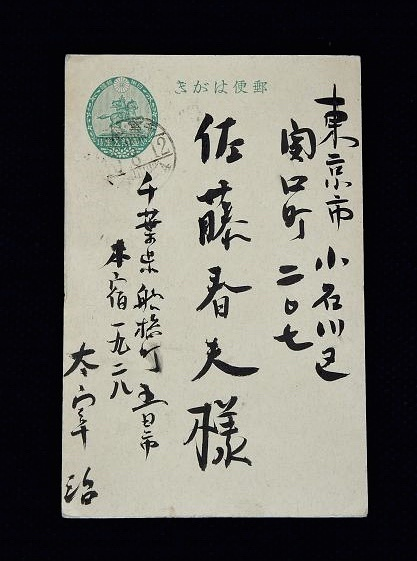 郵便はがき
東京市小石川区
関口町二〇七
佐藤春夫様
千葉県船橋町五日市
本宿一九二八
太宰治